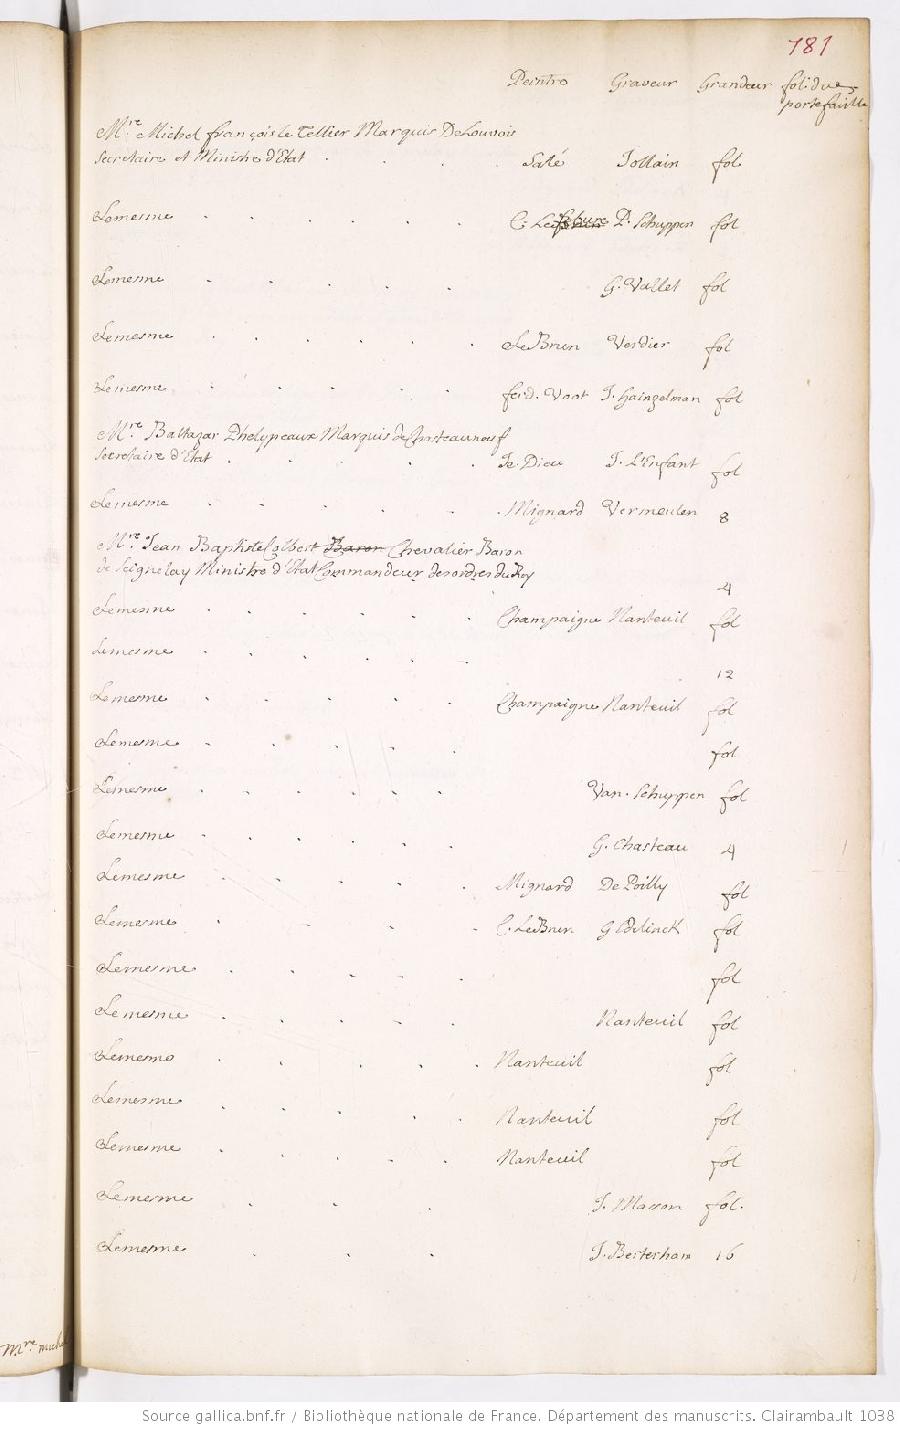 181
Peintre Graveur Grandeur fol. du
portefaille
Mre. Michel françois le Tellier Marquis De Louvois
Secretaire et Ministre d'Etat . . . . Salé Jollain fol
Lemesme . . . . . . C. Le febure P. Schuppen fol
Lemesme . . . . . G. Vallet fol
Lemesme . . . . . . Le Brun Verdier fol
Lemesme . . . . . ferd. Vout J. Hainzelman fol
Mre. Baltazar Phelypeaux Marquis de Chasteauneuf
Secretaire d'Etat . . . . . Je. Dieu J. L'Enfant fol
Lemesme . . . . . . Mignard Vermeulen 8
Mre. Jean Baptiste Colbert Baron Chevalier Baron
de Seignelay Ministre d'Etat Commandeur des ordres du Roy
4
Lemesme . . . . . . Champaigne Nanteuil fol
Lemesme . . . . . .
12
Lemesme . . . . . Champaigne Nanteuil fol
Lemesme . . . . . fol
Lemesme . . . . . Van. Schuppen fol
Lemesme . . . . . G. Chasteau 4
Lemesme . . . . . Mignard De Poilly fol
Lemesme . . . . C. Le Brun G Edelinck fol
Lemesme . . . . . fol
Lemesme . . . . . Nanteuil fol
Lemesme . . . . . Nanteuil fol
Lemesme . . . . . Nanteuil fol
Lemesme . . . . . Nanteuil fol
Lemesme . . . J. Masson fol.
Lemesme . . . J. Besterham 16
Mre. mich
Source gallica.bnf.fr / Bibliothèque nationale de France. Département des manuscrits. Clairambault 1038